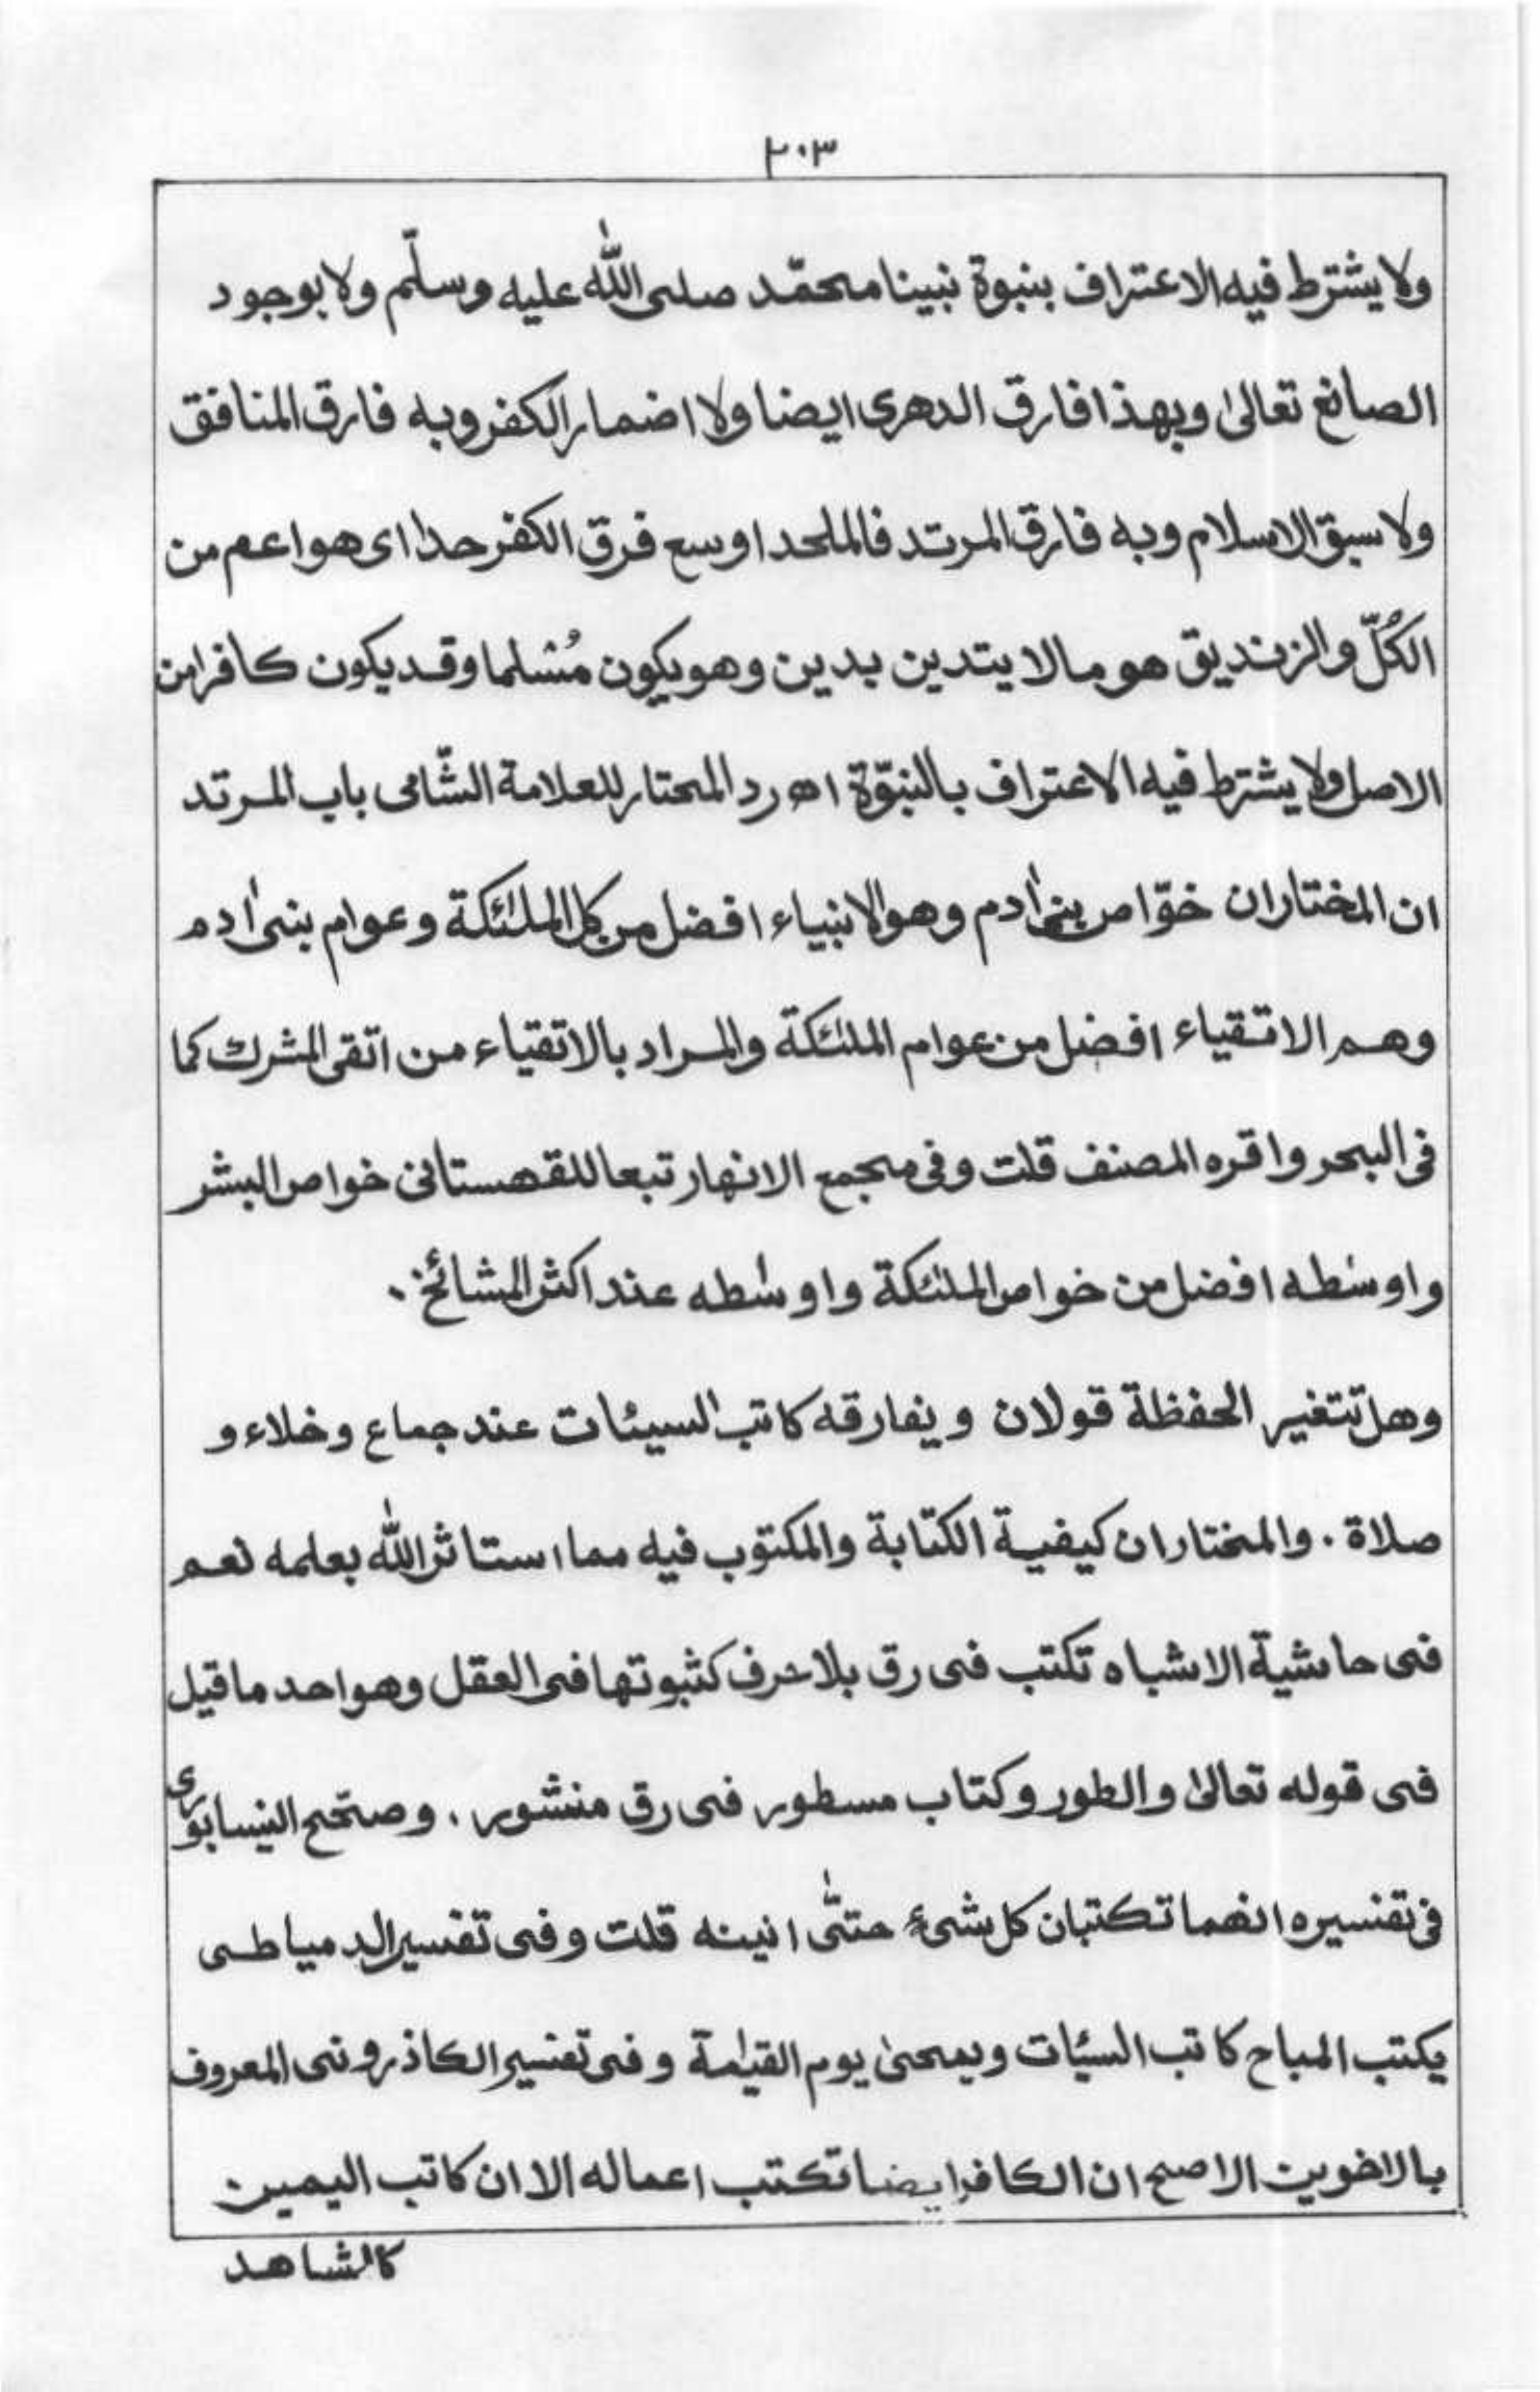 ٢٠٣
ولا يشترط فيه الاعتراف بنبوة نبينا محمّد صلى الله عليه وسلّم ولا بوجود
الصانع تعالىٰ وبهذا فارق الدهرى ايضا ولا اضمار الكفر وبه فارق المنافق
ولا سبق الاسلام وبه فارق المرتد فالملحد اوسع فرق الكفر حدا اى هو اعم من
الكُلّ والزنديق هو مالا يتدين بدين وهو يكون مُسُلما وقد يكون كافرا من
الاصل ولا يشترط فيه الاعتراف بالنبوّة اھ رد المحتار للعلامة الشّامى باب المرتد
ان المختار ان خوّاص بنى اٰدم وهو الانبياء افضل من كل الملٰئكة وعوام بنى اٰدم
وهم الاتقياء افضل من عوام الملٰئكة والمراد بالاتقياء من اتقى الشرك كما
فى البحر واقره المصنف قلت وفى مجمع الانهار تبعا للقهستانى خواص البشر
واوسٰطه افضل من خواص الملٰئكة واوسٰطه عند اكثر المشائخ .
وهل تتغير الحفظة قولان ويفارقه كاتب السيئات عند جماع وخلاء و
صلاة . والمختار ان كيفية الكتابة والمكتوب فيه مما استاثر الله بعلمه نعم
فى حاشية الاشباه تكتب فى رق بلا حرف كثبوتها فى العقل وهو احد ما قيل
فى قوله تعالىٰ والطور وكتاب مسطور فى رق منشور . وصحّح النيسابورى
فى تفسيره انهما تكتبان كل شىءٍ حتّٰى انينه قلت وفى تفسير الدمياطى
يكتب المباح كاتب السئّات ويمحىٰ يوم القيٰمة وفى تفسير الكاذرونى المعروف
بالاخوين الاصح ان الكافر ايضا تكتب اعماله الا ان كاتب اليمين
كالشاهد